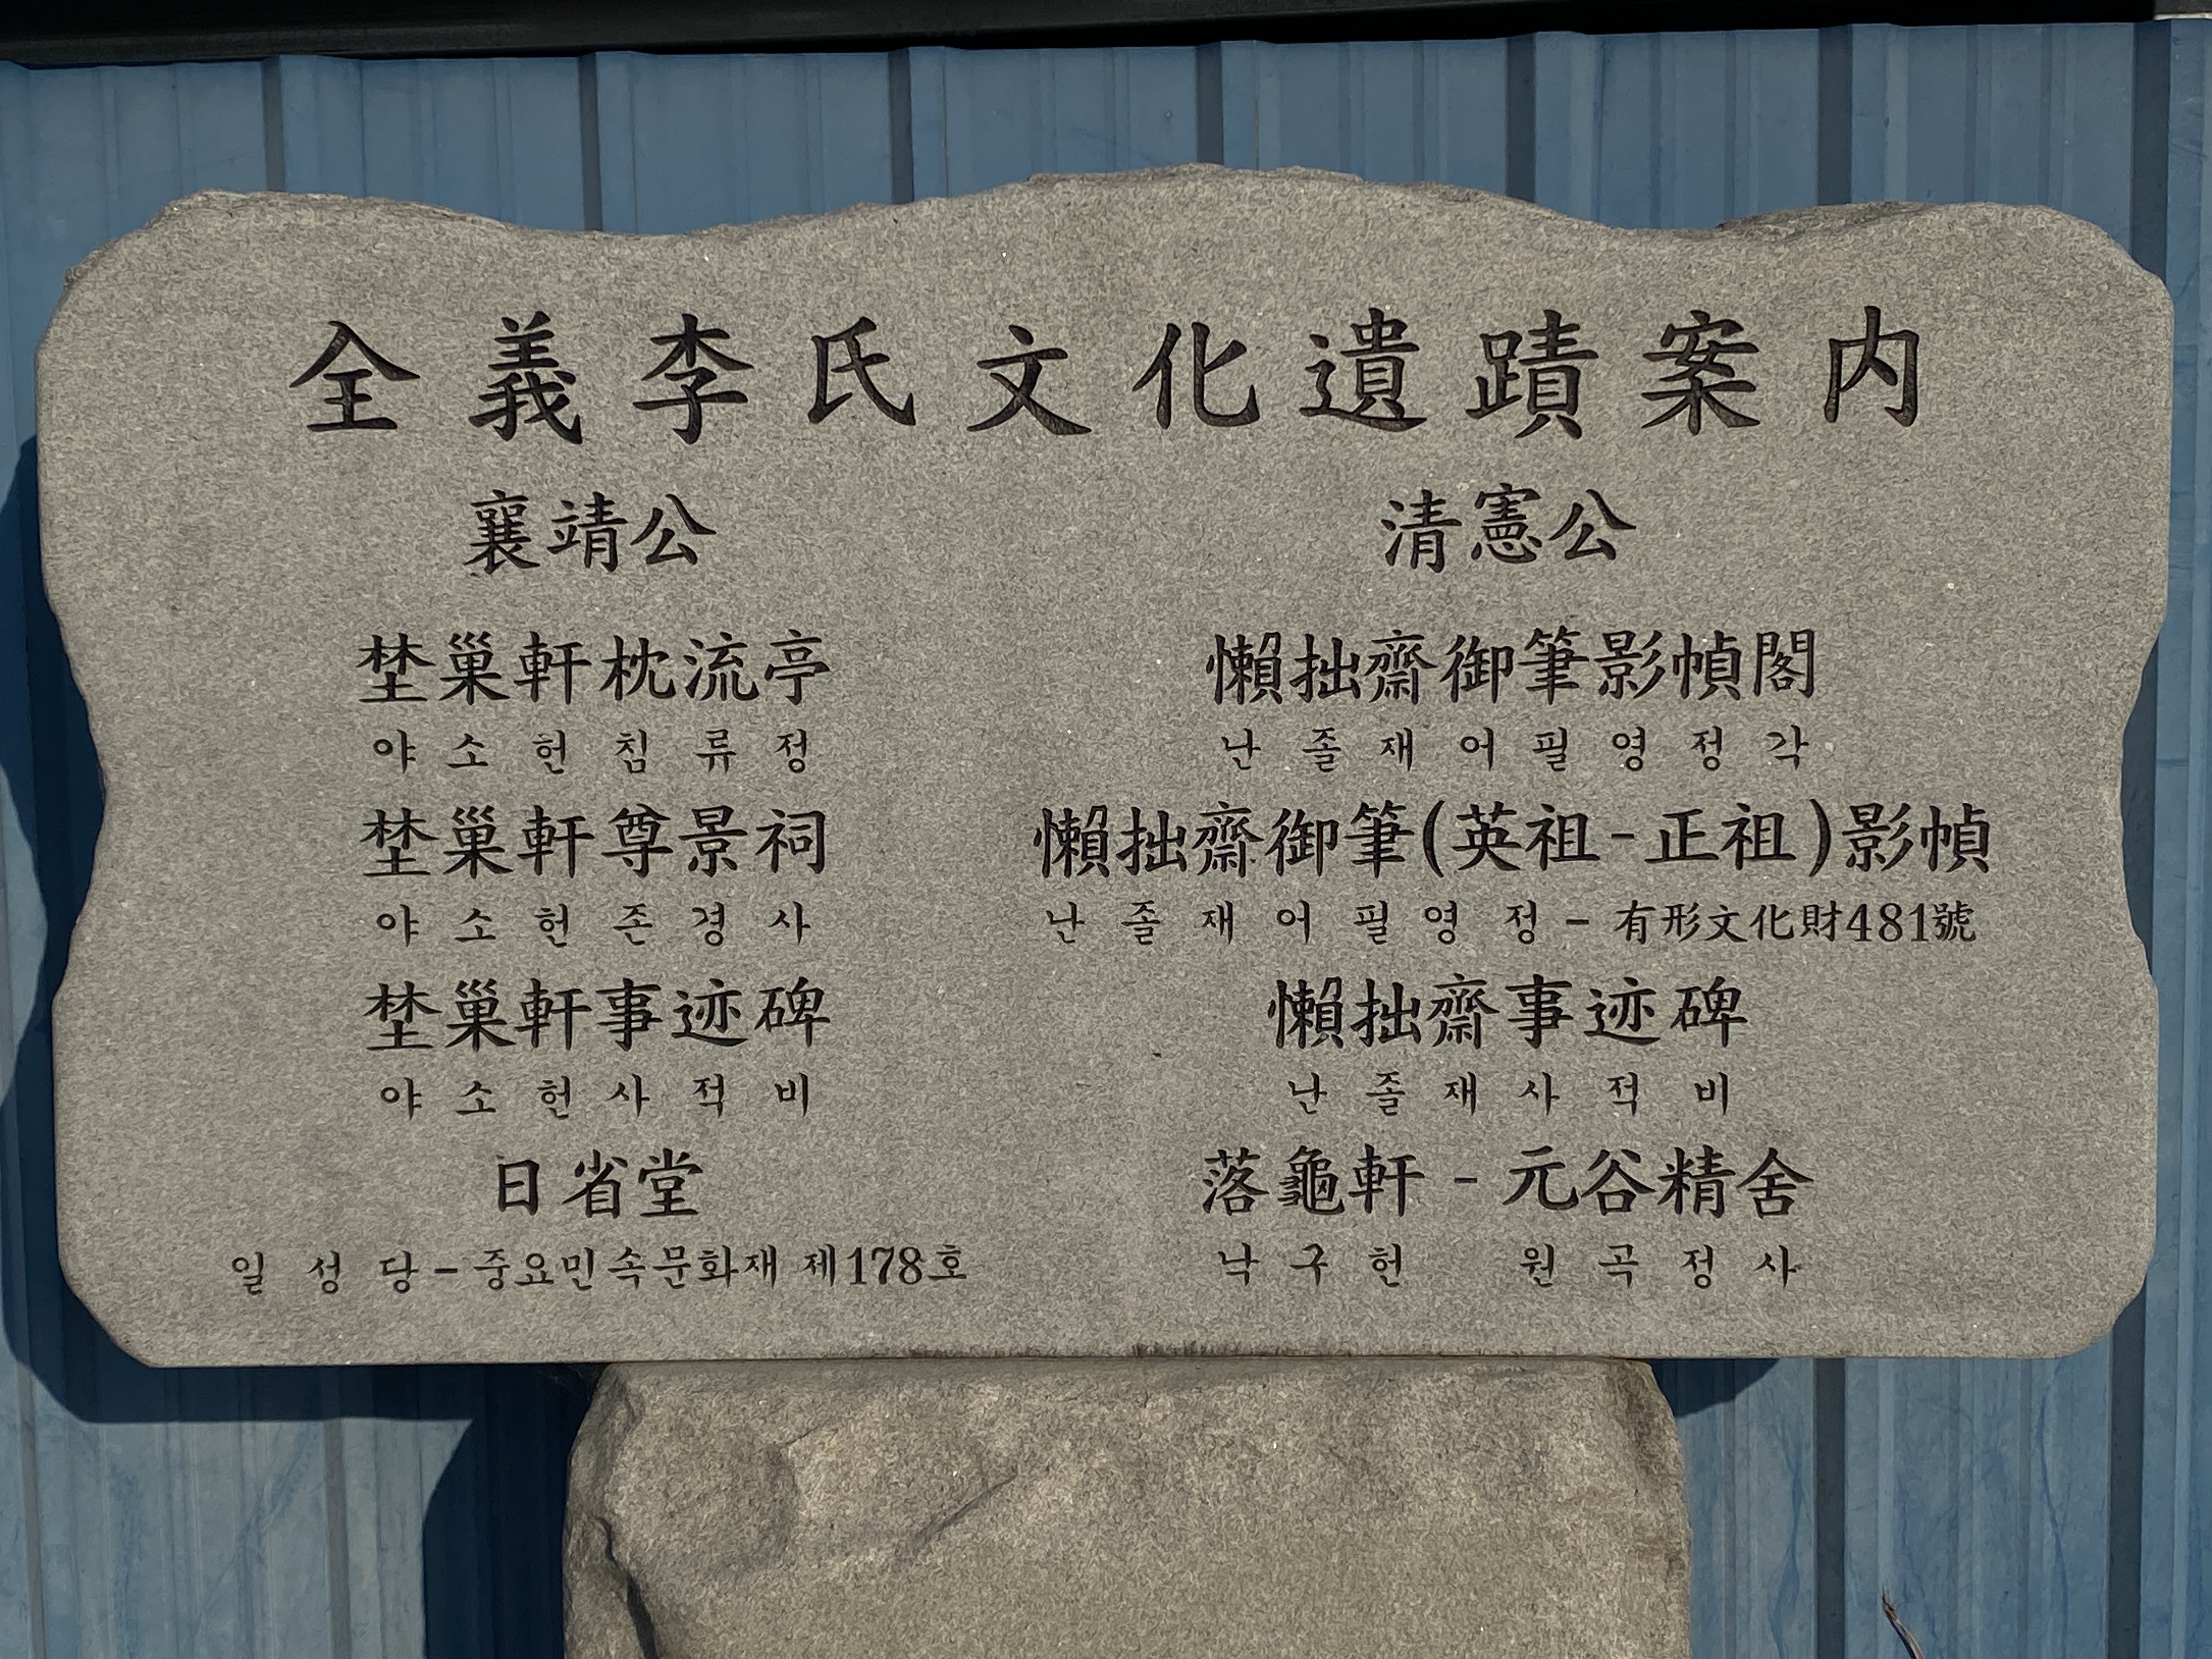 全義李氏文化遺蹟案内
襄靖公
埜巢軒枕流亭
야소헌침류정
埜巢軒尊景祠
야소헌존경사
埜巢軒事迹碑
야소헌사적비
日省堂
일성당-중요민속문화재 제178호
清憲公
懶拙齋御筆影幀閣
난졸재어필영정각
懶拙齋御筆(英祖-正祖)影幀
난졸재어필영정-有形文化財481號
懶拙齋事迹碑
난졸재사적비
落龜軒-元谷精舍
낙구헌 원곡정사